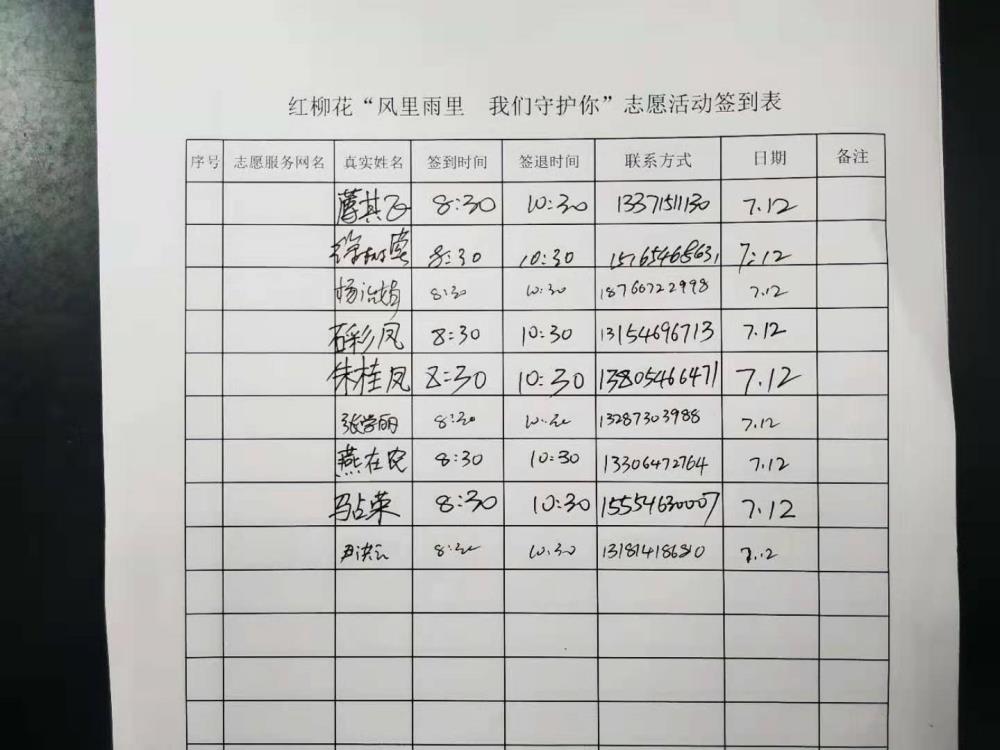 红柳花“风里雨里 我们守护你”志愿活动签到表
序号 志愿服务网名 真实姓名 签到时间 签退时间 联系方式 日期 备注
其飞 8:30 10:30 13371511130 7.12
徐 8:30 10:30 15765468631 7:12
杨治娟 8:30 10:30 18766722998 7.12
石彩凤 8:30 10:30 13154696713 7.12
朱桂凤 8:30 10:30 13805466471 7.12
张学丽 8:30 10:30 13287303988 7.12
燕在农 8:30 10:30 13306472764 7.12
马占荣 8:30 10:30 15554630007 7.12
尹洪云 8:30 10:30 131814186810 7.12